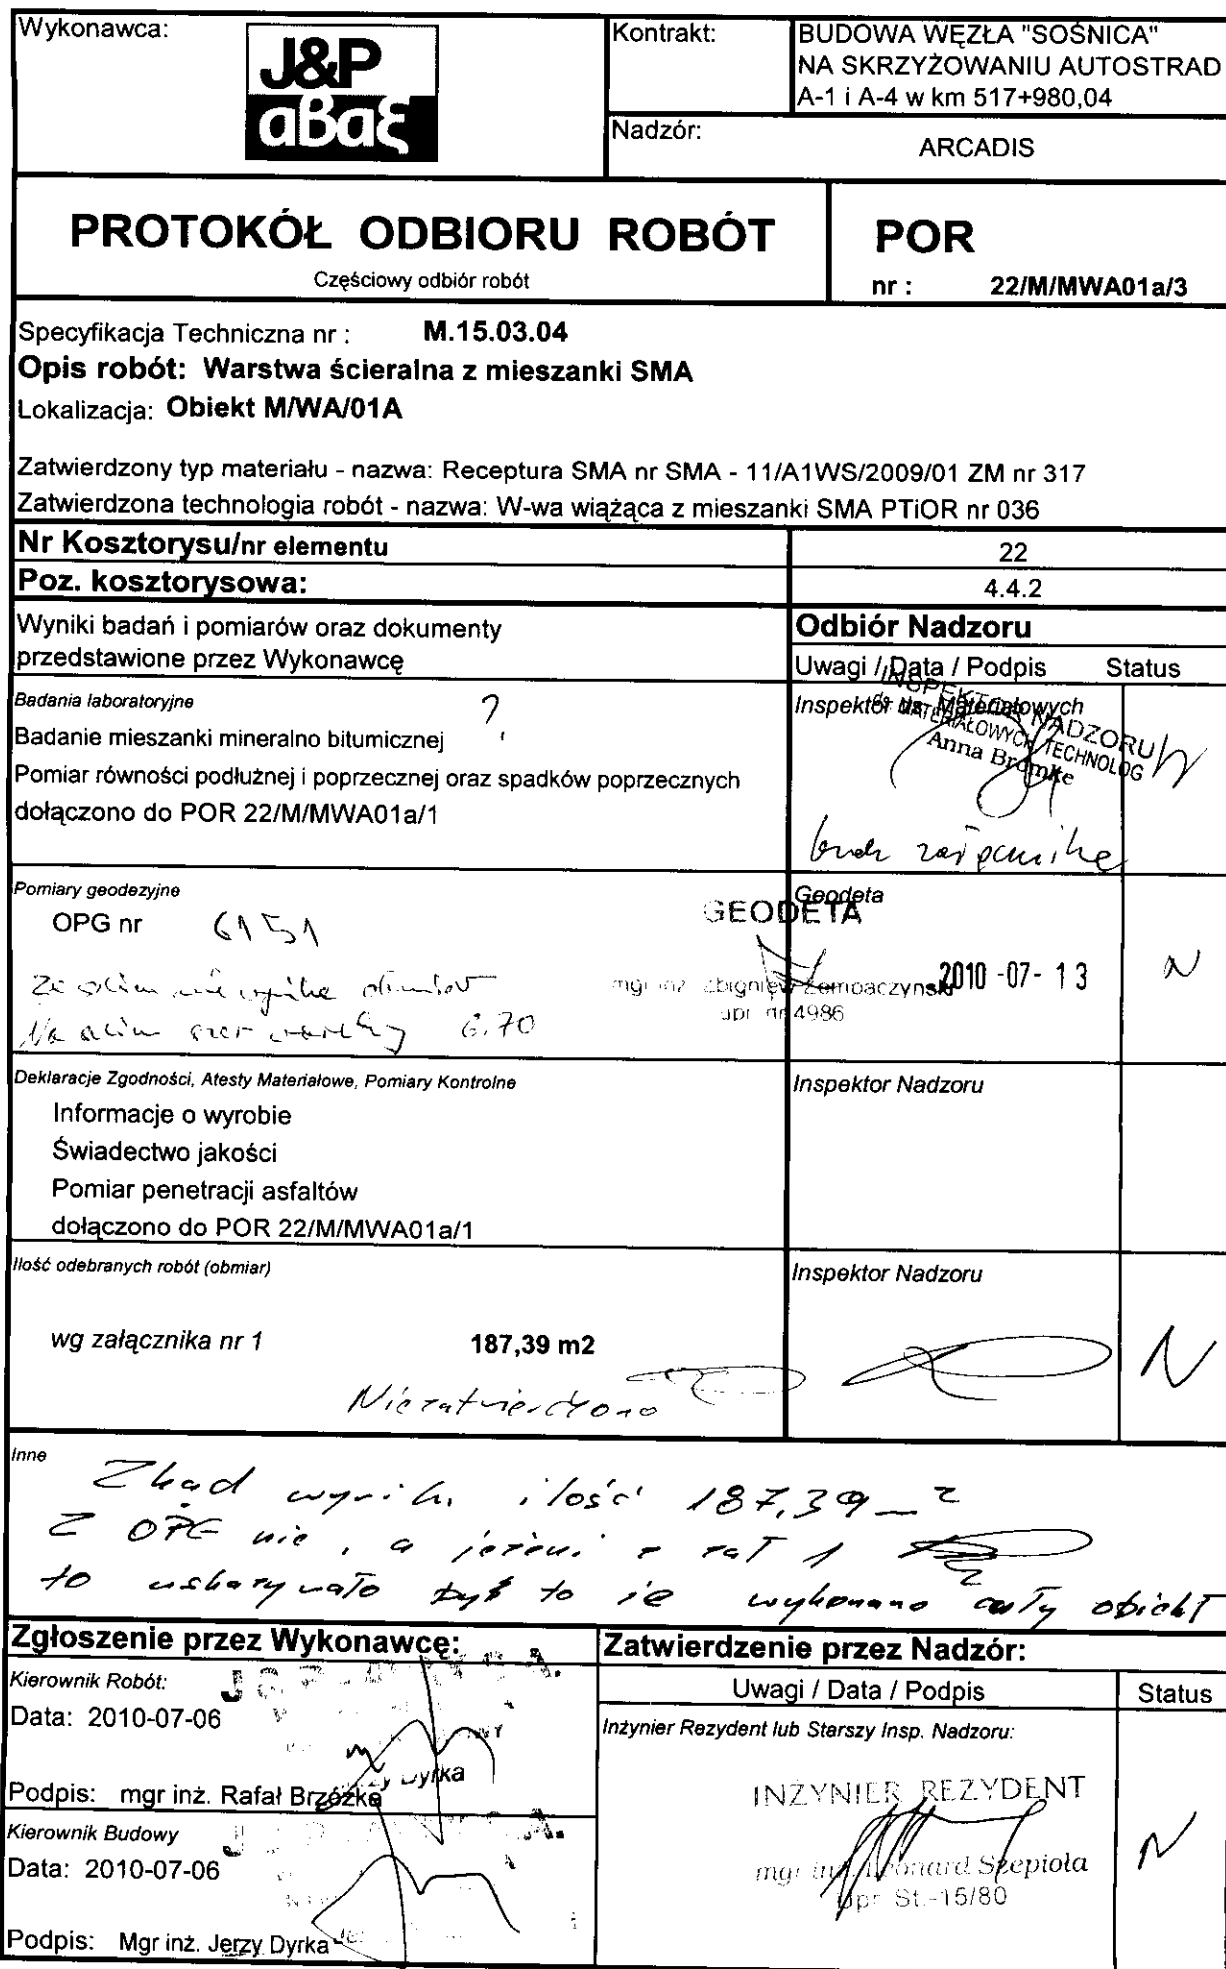 Wykonawca:
J&P
aBaξ
Kontrakt:
BUDOWA WĘZŁA "SOŚNICA"
NA SKRZYŻOWANIU AUTOSTRAD
A-1 i A-4 w km 517+980,04
Nadzór:
ARCADIS
PROTOKÓŁ ODBIORU ROBÓT
Częściowy odbiór robót
POR
nr : 22/M/MWA01a/3
Specyfikacja Techniczna nr : M.15.03.04
Opis robót: Warstwa ścieralna z mieszanki SMA
Lokalizacja: Obiekt M/WA/01A
Zatwierdzony typ materiału - nazwa: Receptura SMA nr SMA - 11/A1WS/2009/01 ZM nr 317
Zatwierdzona technologia robót - nazwa: W-wa wiążąca z mieszanki SMA PTiOR nr 036
Nr Kosztorysu/nr elementu 22
Poz. kosztorysowa: 4.4.2
Wyniki badań i pomiarów oraz dokumenty
przedstawione przez Wykonawcę
Odbiór Nadzoru
Uwagi / Data / Podpis Status
Badania laboratoryjne ?
Badanie mieszanki mineralno bitumicznej
Pomiar równości podłużnej i poprzecznej oraz spadków poprzecznych
dołączono do POR 22/M/MWA01a/1
Inspektor ds. Materiałowych
INSPEKTOR NADZORU
ds. MATERIAŁOWYCH TECHNOLOG
Anna Bromke
N
Pomiary geodezyjne
OPG nr 6151
6.70
Geodeta
GEODETA
mgr inż. Zbigniew
upr. nr 4986
2010 -07- 13
N
Deklaracje Zgodności, Atesty Materiałowe, Pomiary Kontrolne
Informacje o wyrobie
Świadectwo jakości
Pomiar penetracji asfaltów
dołączono do POR 22/M/MWA01a/1
Inspektor Nadzoru
Ilość odebranych robót (obmiar)
wg załącznika nr 1 187,39 m2
Niezatwierdzono
Inspektor Nadzoru
N
Inne
Zkąd wynika ilość 187,39 m2
Z OPG nie, a jeżeli z zał 1
to wskazywało by to że wykonano cały obiekt
Zgłoszenie przez Wykonawcę:
Kierownik Robót:
Data: 2010-07-06
Podpis: mgr inż. Rafał Brzózka
Dyrka
Kierownik Budowy
Data: 2010-07-06
Podpis: Mgr inż. Jerzy Dyrka
Zatwierdzenie przez Nadzór:
Uwagi / Data / Podpis Status
Inżynier Rezydent lub Starszy Insp. Nadzoru:
INŻYNIER REZYDENT
mgr inż. Leonard Szepioła
Upr. St.-15/80
N